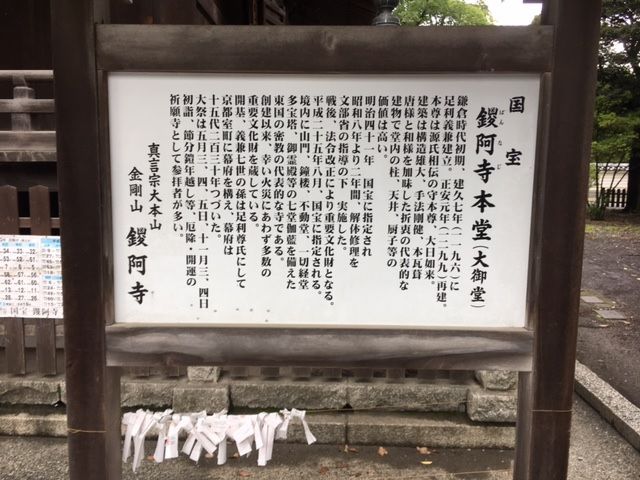 国宝
鑁阿寺本堂(大御堂)
ばんなじ
鎌倉時代初期、建久七年(一一九六)に
足利義兼建立。正安元年(一二九九)再建。
本尊は源氏相伝の守本尊、大日如来。
建築は構造雄大、手法剛健、本瓦葺
唐様と和様を加味した折衷の代表的な
建物で堂内の柱、天井、厨子等の
価値は高い。
明治四十一年 国宝に指定され
昭和八年より二年間、解体修理を
文部省の指導の下 実施した。
戦後、法令改正により重要文化財となる。
平成二十五年八月、国宝に指定される。
境内に山門、鐘楼、不動堂、一切経堂
多宝塔、御霊殿等の七堂伽藍を備えた
東国の密教の代表的な寺である。
創建以来、幸い火災にあわず多数の
重要文化財を蔵している。
開基、義兼七世の孫は足利尊氏にして
京都室町に幕府を構え、幕府は
十五代二百三十年つづいた。
大祭は五月三、四、五日、十一月三、四日
初詣、節分鎧年越し等、厄除・開運の
祈願寺として参拝者が多い。
真言宗大本山
金剛山 鑁阿寺